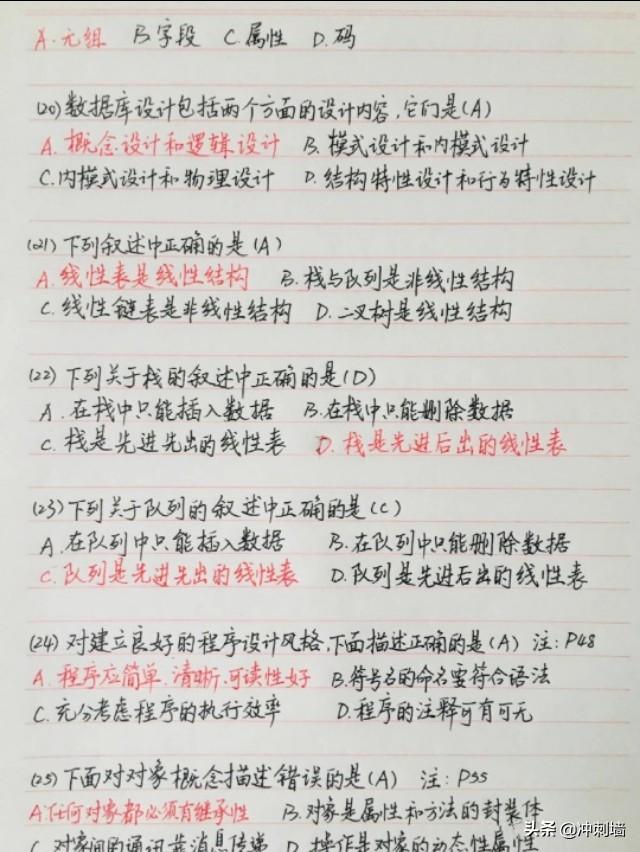 A.元组 B.字段 C.属性 D.码
(20)数据库设计包括两个方面的设计内容,它们是(A)
A.概念设计和逻辑设计 B.模式设计和内模式设计
C.内模式设计和物理设计 D.结构特性设计和行为特性设计
(21)下列叙述中正确的是(A)
A.线性表是线性结构 B.栈与队列是非线性结构
C.线性链表是非线性结构 D.二叉树是线性结构
(22)下列关于栈的叙述中正确的是(D)
A.在栈中只能插入数据 B.在栈中只能删除数据
C.栈是先进先出的线性表 D.栈是先进后出的线性表
(23)下列关于队列的叙述中正确的是(C)
A.在队列中只能插入数据 B.在队列中只能删除数据
C.队列是先进先出的线性表 D.队列是先进后出的线性表
(24)对建立良好的程序设计风格,下面描述正确的是(A) 注:P48
A.程序应简单、清晰、可读性好 B.符号名的命名要符合语法
C.充分考虑程序的执行效率 D.程序的注释可有可无
(25)下面对对象概念描述错误的是(A) 注:P55
A.任何对象都必须有继承性 B.对象是属性和方法的封装体
C.对象间的通讯靠消息传递 D.操作是对象的动态性属性
头条 @冲刺墙